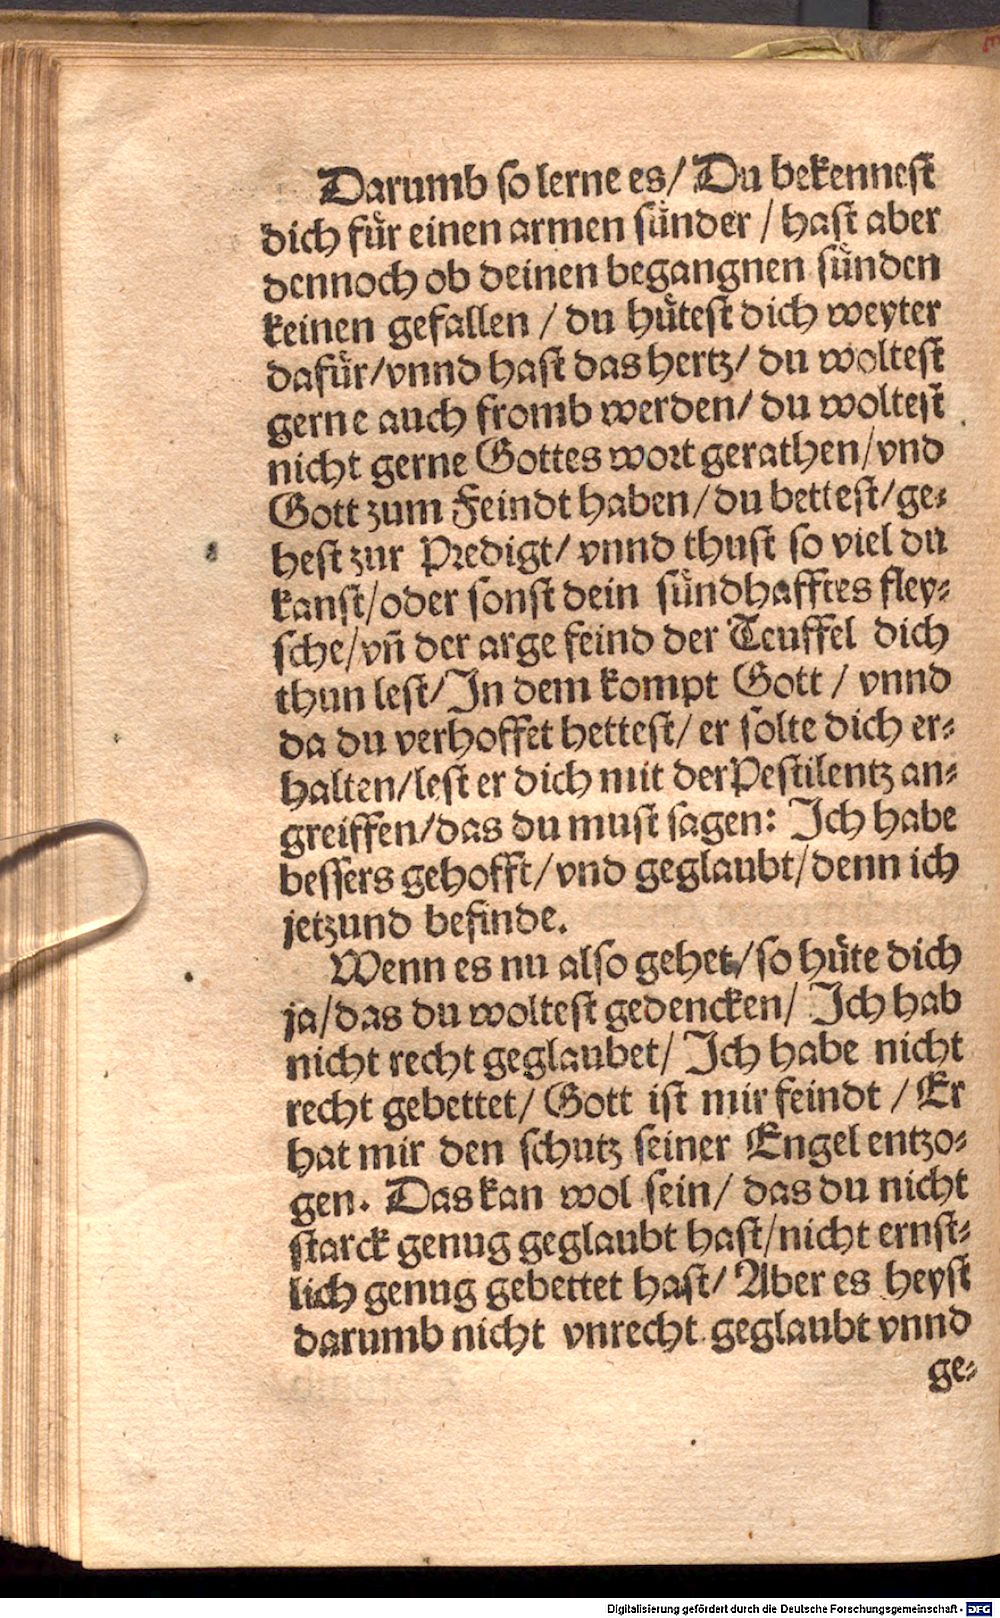 Darumb so lerne es/ Du bekennest
dich fuͤr einen armen suͤnder / hast aber
dennoch ob deinen begangnen suͤnden
keinen gefallen / du huͤtest dich weyter
dafuͤr/vnnd hast das hertz/ du woltest
gerne auch fromb werden/ du woltest
nicht gerne Gottes wort gerathen/vnd
Gott zum Feindt haben/du bettest/ge-
hest zur Predigt/ vnnd thust so viel du
kanst/oder sonst dein suͤndhafftes fley-
sche/vñ der arge feind der Teuffel dich
thun lest/In dem kompt Gott / vnnd
da du verhoffet hettest/ er solte dich er-
halten/lest er dich mit der Pestilentz an-
greiffen/das du must sagen: Ich habe
bessers gehofft/vnd geglaubt/denn ich
jetzund befinde.
Wenn es nu also gehet/so huͤte dich
ja/das du woltest gedencken/ Ich hab
nicht recht geglaubet/ Ich habe nicht
recht gebettet/ Gott ist mir feindt / Er
hat mir den schutz seiner Engel entzo-
gen. Das kan wol sein/ das du nicht
starck genug geglaubt hast/nicht ernst-
lich genug gebettet hast/ Aber es heyst
darumb nicht vnrecht geglaubt vnnd
ge-
Digitalisierung gefördert durch die Deutsche Forschungsgemeinschaft - DFG